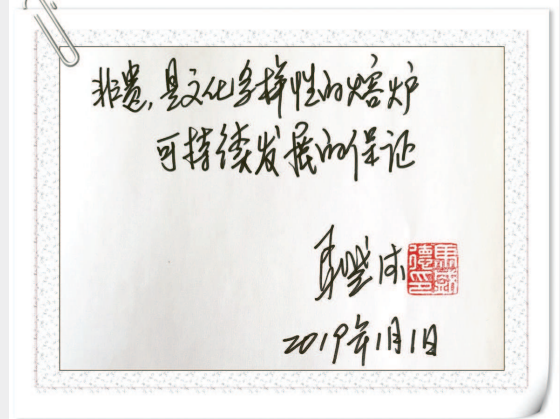 非遗,是文化多样性的熔炉
可持续发展的保证
马盛德
2019年1月1日
马盛德印